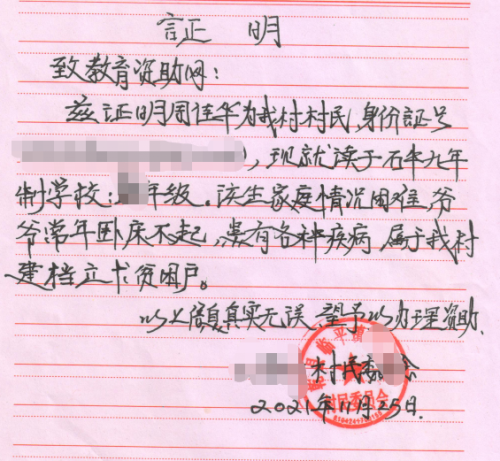 証正 明
致教育资助网：
兹证明周佳华为我村村民，身份証号
），现就读于石丰九年
制学校：年级。该生家庭情况困难，爷
爷常年卧床不起，患有各种疾病，属于我村
建档立卡贫困户。
以上信息真实无误，望予以办理资助.
村民委会
2021年11月25日.
临平镇
村民委员会